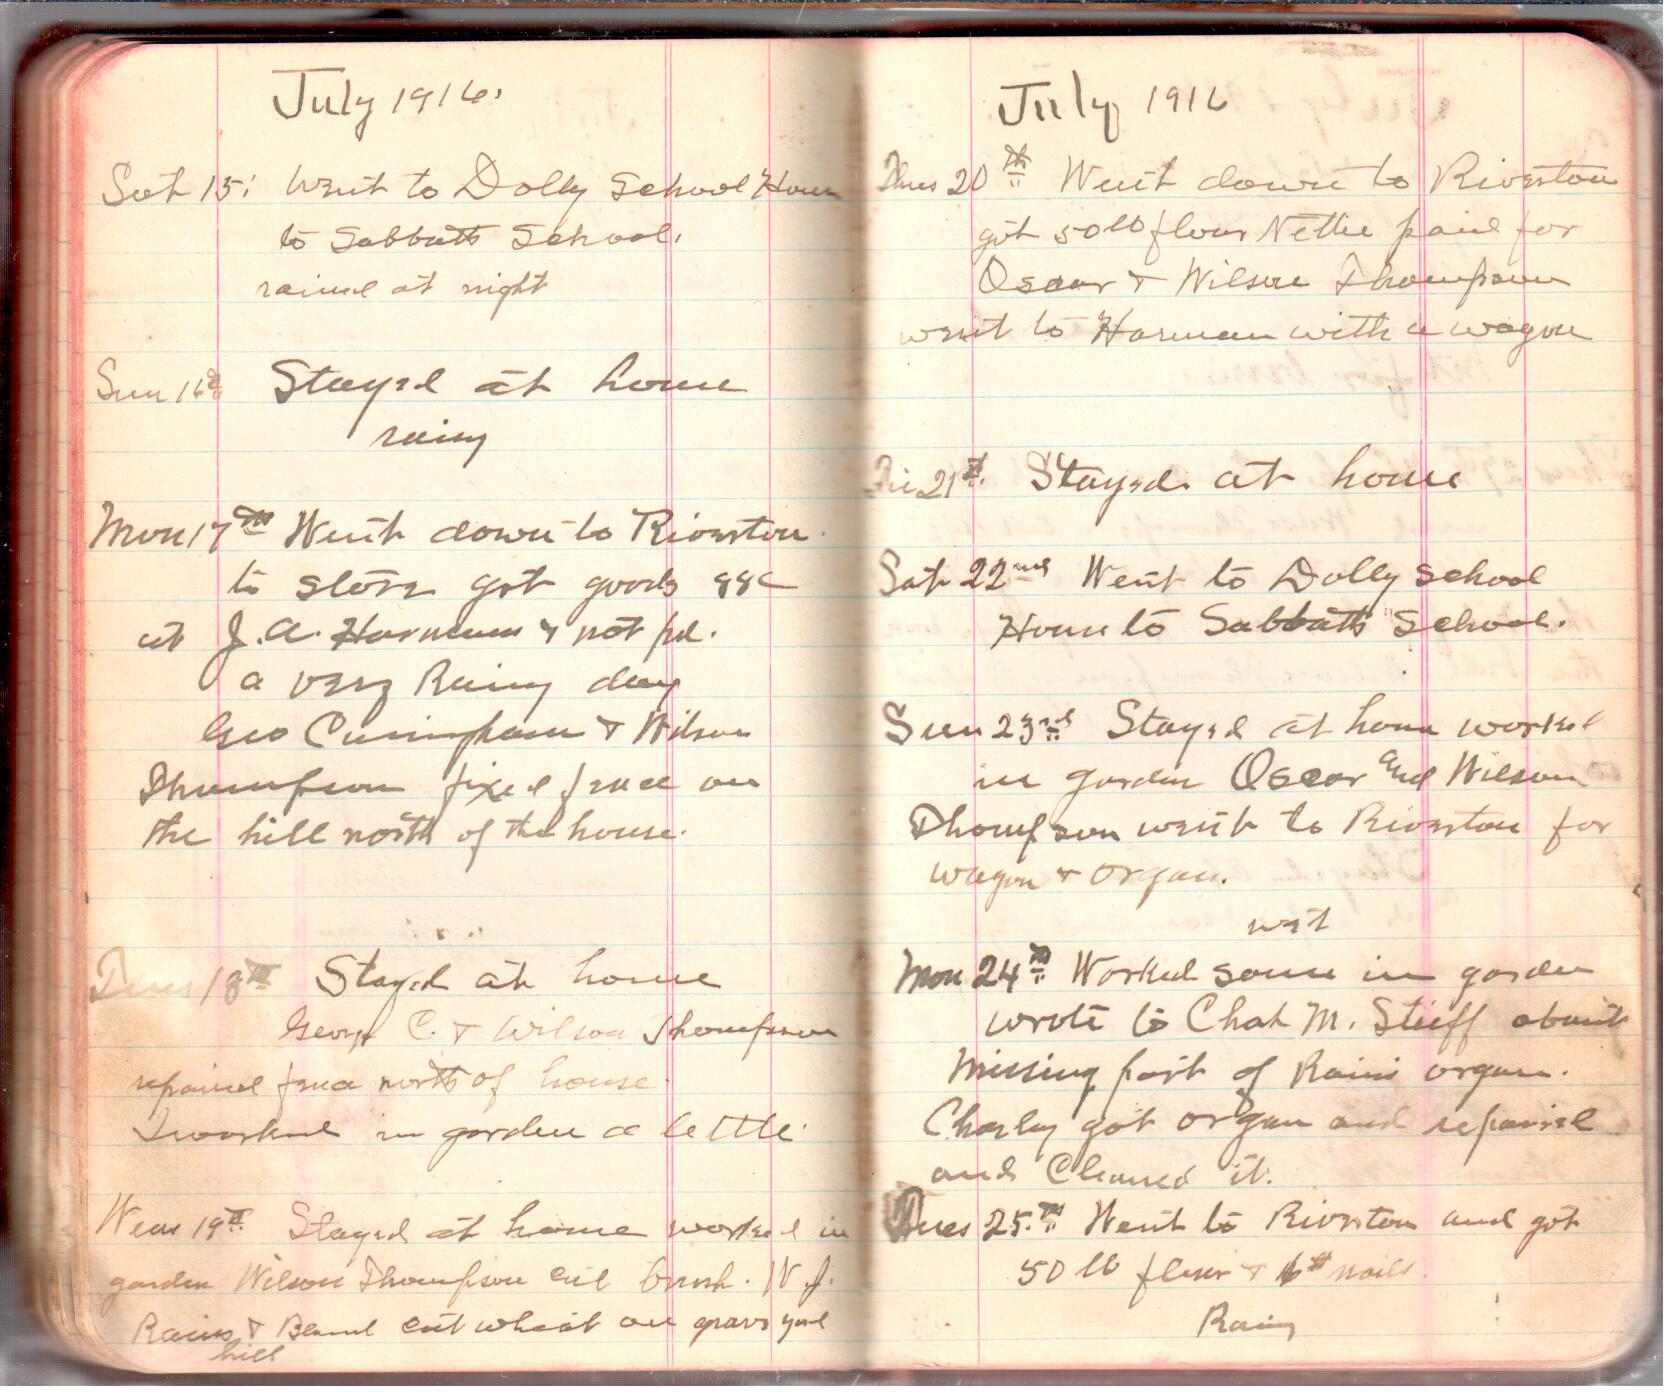 July 1916.
Sat 15: Went to Dolly School House
to Sabbath School.
rained at night
Sun 16th Stayed at home
rainy
Mon 17th Went down to Riverton
to store got goods 88c
at J. A. Harman & not pd.
a very Rainy day
Geo Cuningham & Wilson
Thompson fixed fence on
the hill north of the house.
Tues 18th Stayed at home
George C. & Wilson Thompson
repaired fence north of house.
I worked in garden a little.
Wens 19th Stayed at home worked in
garden Wilson Thompson cut brush. W. J.
Rains & cut wheat on grave yard
hill
July 1916
Thus 20th Went down to Riverton
got 50 lb flour Nettie paid for
Oscar & Wilson Thompson
went to Harman with a wagon
Fri 21st. Stayed at home
Sat 22nd Went to Dolly School
House to Sabbath School.
Sun 23rd Stayed at home worked
in garden Oscar and Wilson
Thompson went to Riverton for
wagon & organ.
wet
Mon 24th Worked some in garden
wrote to Chas M. Stieff about
missing part of Rains organ.
Charley got organ and repaired
and Cleaned it.
Tues 25th Went to Riverton and got
50 lb flour & nails.
Rainy